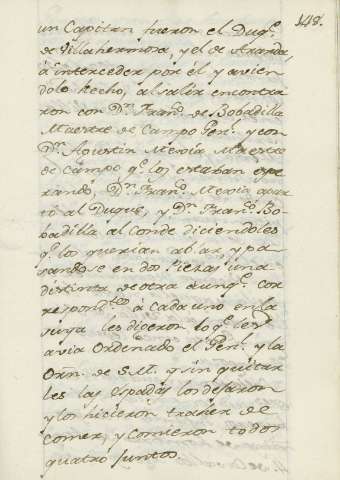 148.
un Capitan fueron el Duq.e
de Villahermosa, y el de Aranda,
à interceder por él y avien
dolo hecho, al salir encontra
ron con D.n Fran.co de Bobadilla
Maestre de Campo Gen.l y con
D.n Agustin Mexia Maestre
de Campo q.e los estaban espe
rando, D.n Fran.co Mexia apar
tó al Duque, y D.n Fran.co Bo-
badilla al Conde diciendoles
q.e los querian ablar, y pa
sandose en dos Piezas una
distinta de otra aunq.e cor
respond.tes à cada uno en la
suya les digeron lo q.e les
avia Ordenado el Gen.l y la
Orn. de S.M. y sin quitar
les las espadas los dejaron
y los hicieron traher de
comer, y comieron todos
quatro juntos.